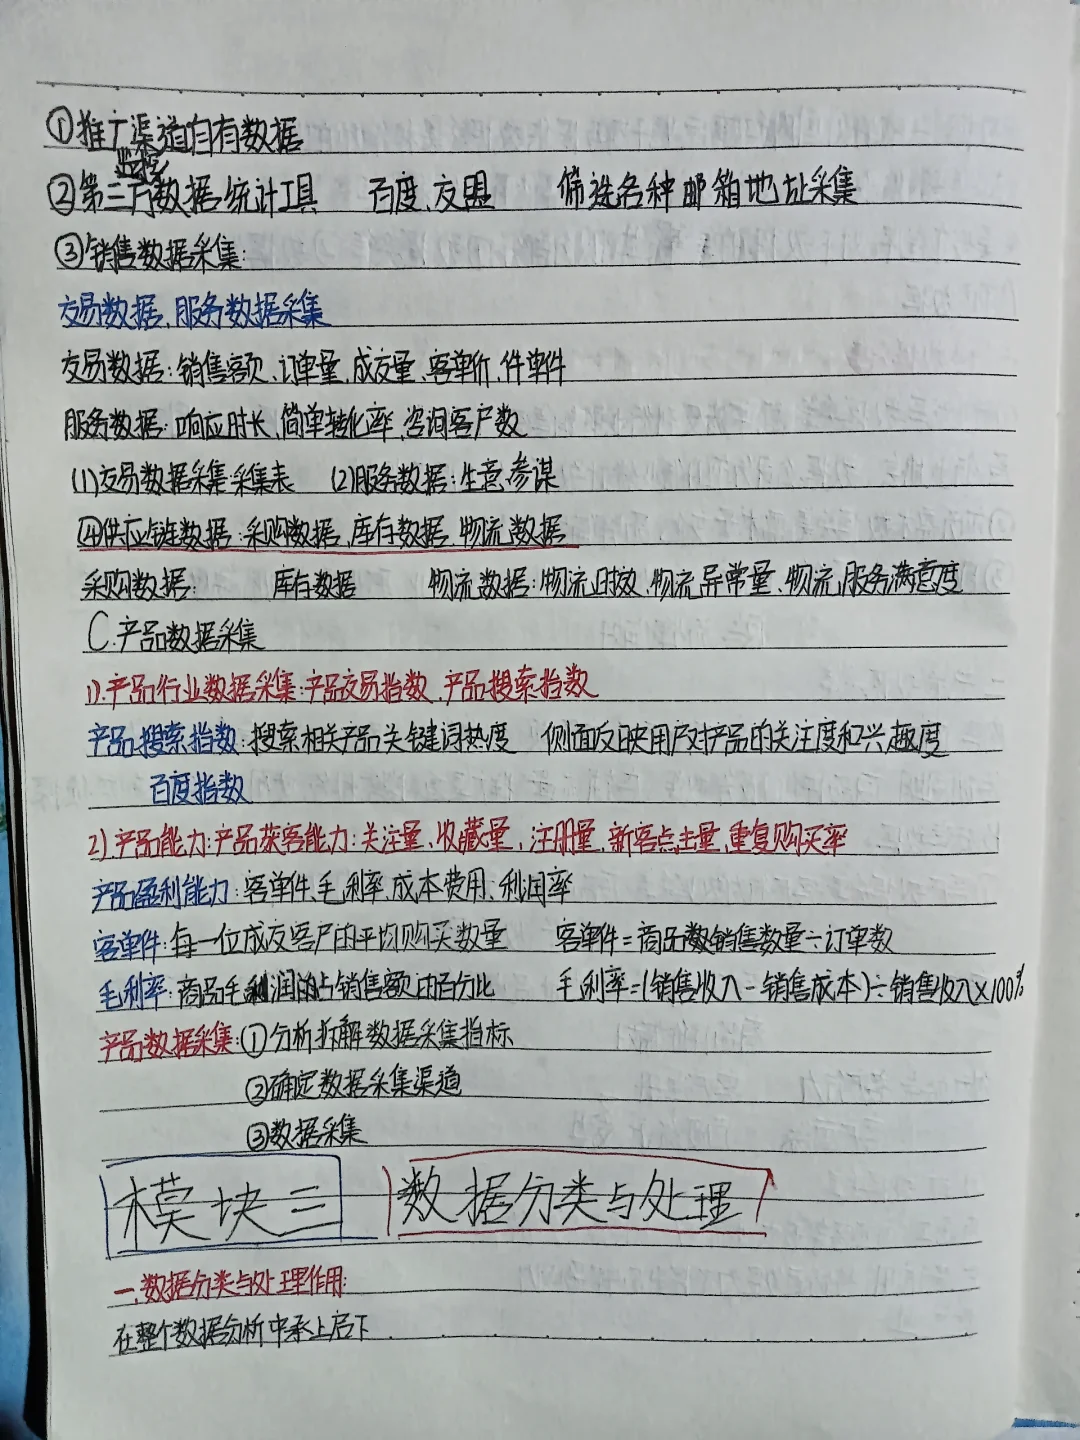 ①推广渠道自有数据
监控
②第三方数据统计工具 百度、友盟 筛选各种邮箱地址采集
③销售数据采集:
交易数据、服务数据采集
交易数据:销售额、订单量、成交量、客单价、件单件
服务数据:响应时长、简单转化率、咨询客户数
(1)交易数据采集:采集表 (2)服务数据:生意参谋
(4)供应链数据:采购数据、库存数据、物流数据
采购数据: 库存数据 物流数据:物流时效、物流异常量、物流服务满意度
C.产品数据采集
1).产品行业数据采集:产品交易指数、产品搜索指数
产品搜索指数:搜索相关产品关键词热度 侧面反映用户对产品的关注度和兴趣度
百度指数
2).产品能力:产品获客能力:关注量、收藏量、注册量、新客点击量、重复购买率
产品盈利能力:客单件、毛利率、成本费用、利润率
客单件:每一位成交客户的平均购买数量 客单件=商品数销售数量÷订单数
毛利率:商品毛利润的占销售额的百分比 毛利率=(销售收入-销售成本)÷销售收入×100%
产品数据采集:①分析拆解数据采集指标
②确定数据采集渠道
③数据采集
模块三 数据分类与处理
一.数据分类与处理作用:
在整个数据分析中承上启下